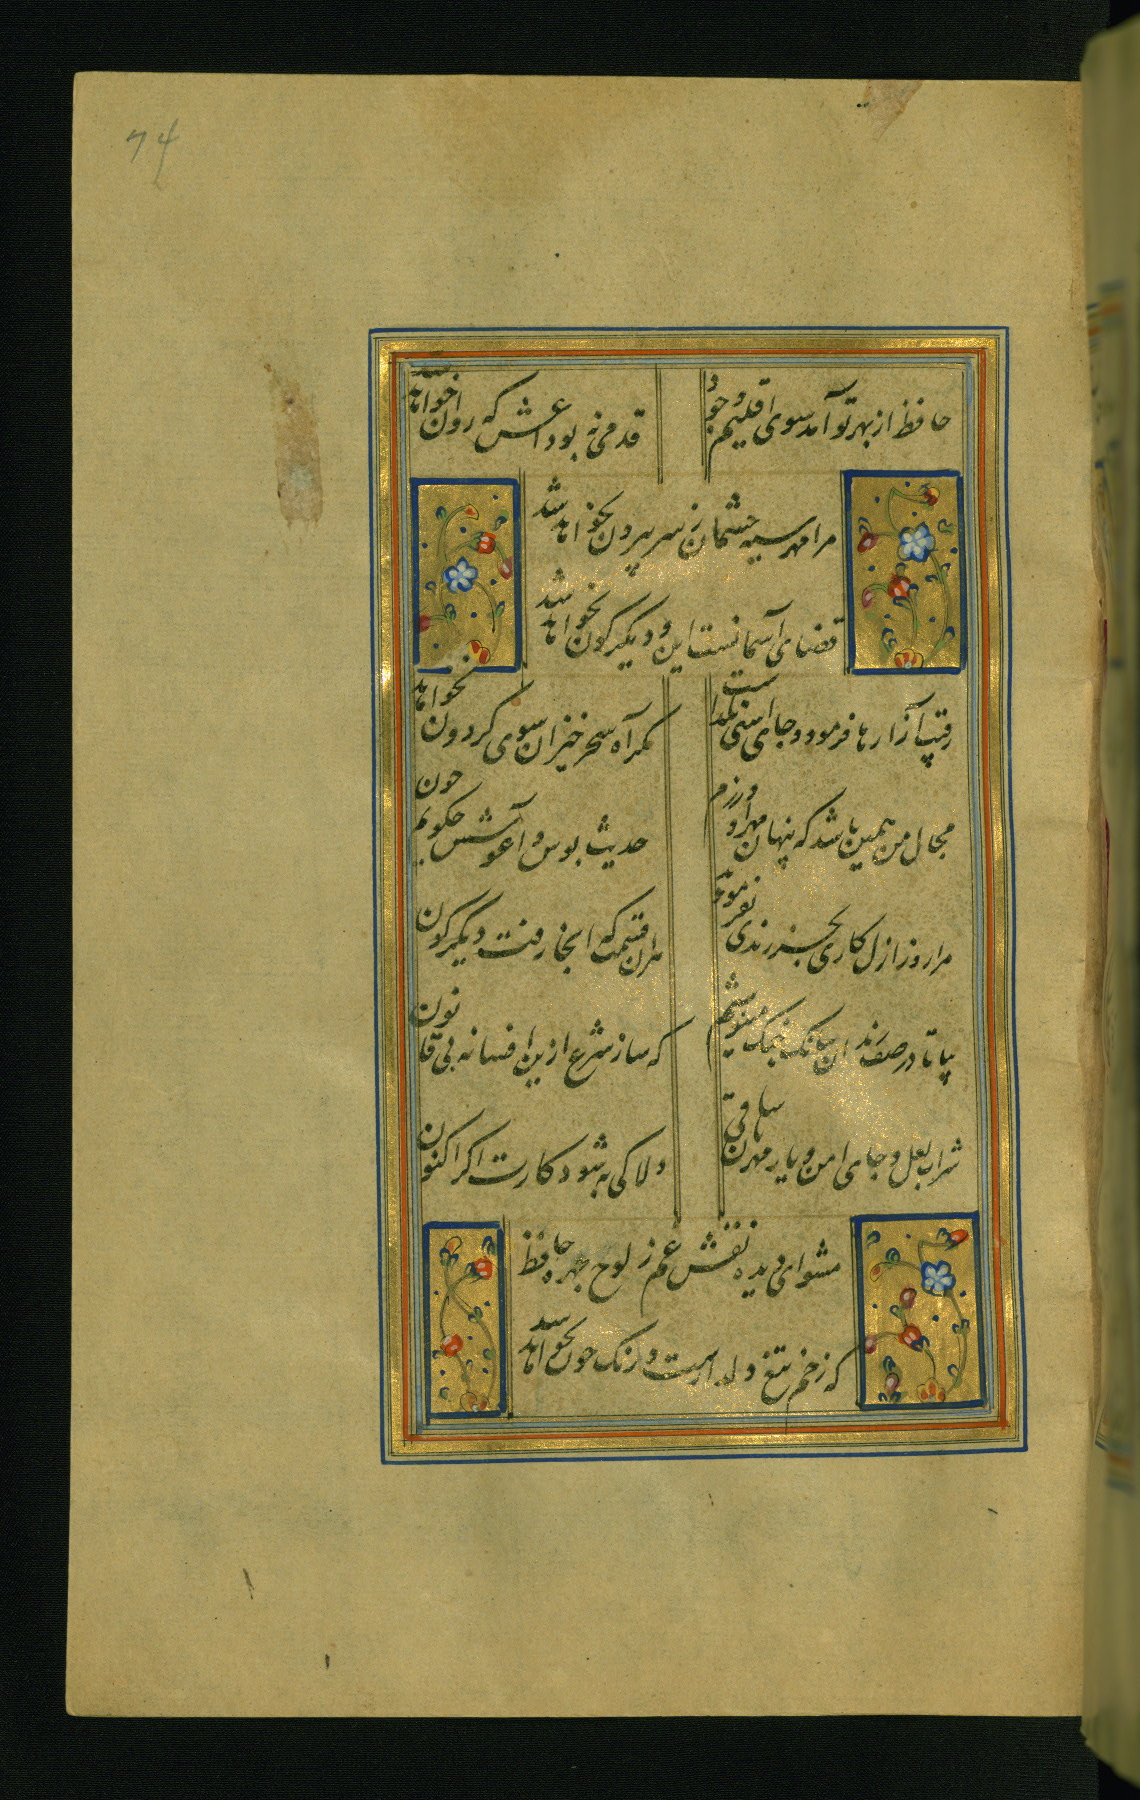 74
حافظ از بهر تو آمد سوی اقلیم وجود
قدمی نه بوداعش که روان خواهد شد
مرا مهر سیه چشمان ز سر بیرون نخواهد شد
قضای آسمانست این و دیگرگون نخواهد شد
رقیب آزارها فرمود و جای آشتی نگذاشت
مگر آه سحرخیزان سوی گردون نخواهد
مجال من همین باشد که پنهان مهر او ورزم
حدیث بوس و آغوشش چگویم چون
مرا روز ازل کاری بجز رندی نفرمودند
هران قسمت که انجا رفت دیگرگون
بیا تا در صف رندان ببانک چنک می نوشیم
که ساز شرع ازین افسانه بی قانون
شراب لعل و جای امن و یار مهربان ساقی
دلا کی به شود کارت اگر اکنون
مشو ای دیده نقش غم ز لوح چهره حافظ
که زخم تیغ دلدارست و رنک خون نخواهد شد